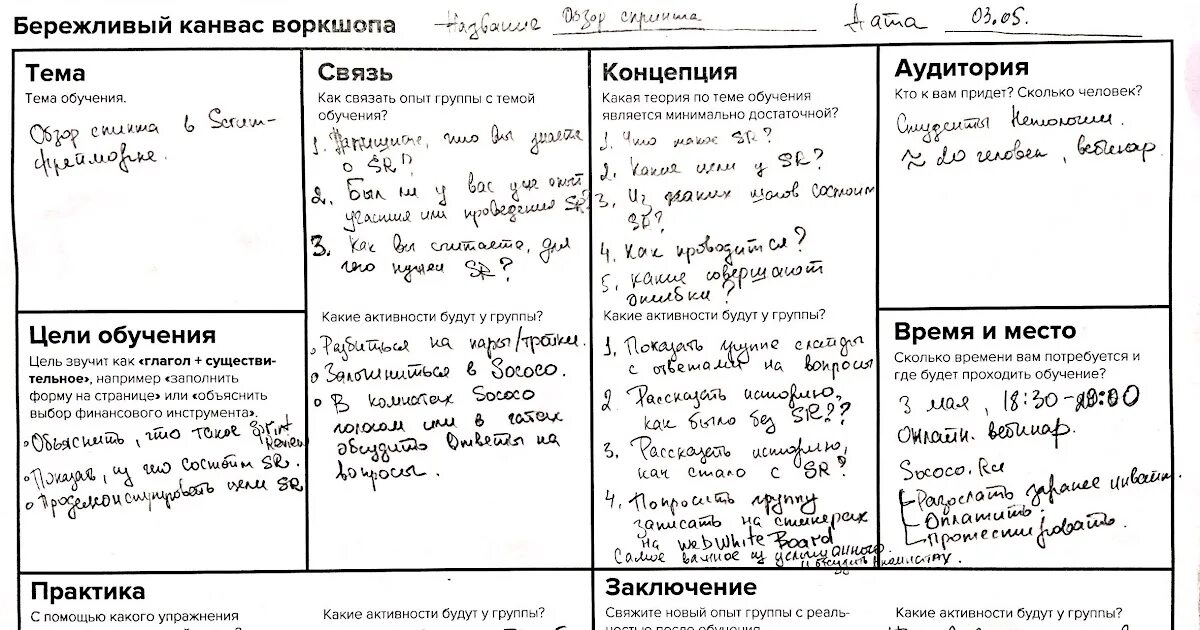 Бережливый канвас воркшопа Название Обзор спринта Дата 03.05.
Тема
Тема обучения.
Обзор спинта в Scrum-
фреймворке.
Связь
Как связать опыт группы с темой
обучения?
1. Напишите, что вы знаете
о SR?
2. Был ли у вас уже опыт
участия или проведения SR?
3. Как вы считаете, для
чего нужен SR?
Какие активности будут у группы?
Разбиться на пары/тройки.
Залогиниться в Sococo.
В комнатах Sococo
голосом или в чатах
обсудить ответы на
вопросы.
Концепция
Какая теория по теме обучения
является минимально достаточной?
1. Что такое SR?
2. Какие цели у SR?
3. Из каких шагов состоит
SR?
4. Как проводится?
5. Какие совершают
ошибки?
Какие активности будут у группы?
1. Показать группе слайды
с ответами на вопросы
2. Рассказать историю,
как было без SR??
3. Рассказать историю,
как стало с SR?
4. Попросить группу
записать на стикерах
на WebWhiteBoard
Самое важное из услышанного.
и обсудить в комнатах.
Аудитория
Кто к вам придет? Сколько человек?
Студенты Нетологии.
≈ 20 человек, вебинар
Цели обучения
Цель звучит как «глагол + существи-
тельное», например «заполнить
форму на странице» или «объяснить
выбор финансового инструмента».
Объяснить, что такое Sprint
Review
Показать, из чего состоит SR.
Продемонстрировать цели SR
Время и место
Сколько времени вам потребуется и
где будет проходить обучение?
3 мая, 18:30-20:00
Онлайн. вебинар.
Sococo.Ru
Разослать заранее инвайты.
Оплатить.
Протестировать.
Практика
С помощью какого упражнения
Какие активности будут у группы?
Заключение
Свяжите новый опыт группы с реаль-
ностью после обучения
Какие активности будут у группы?